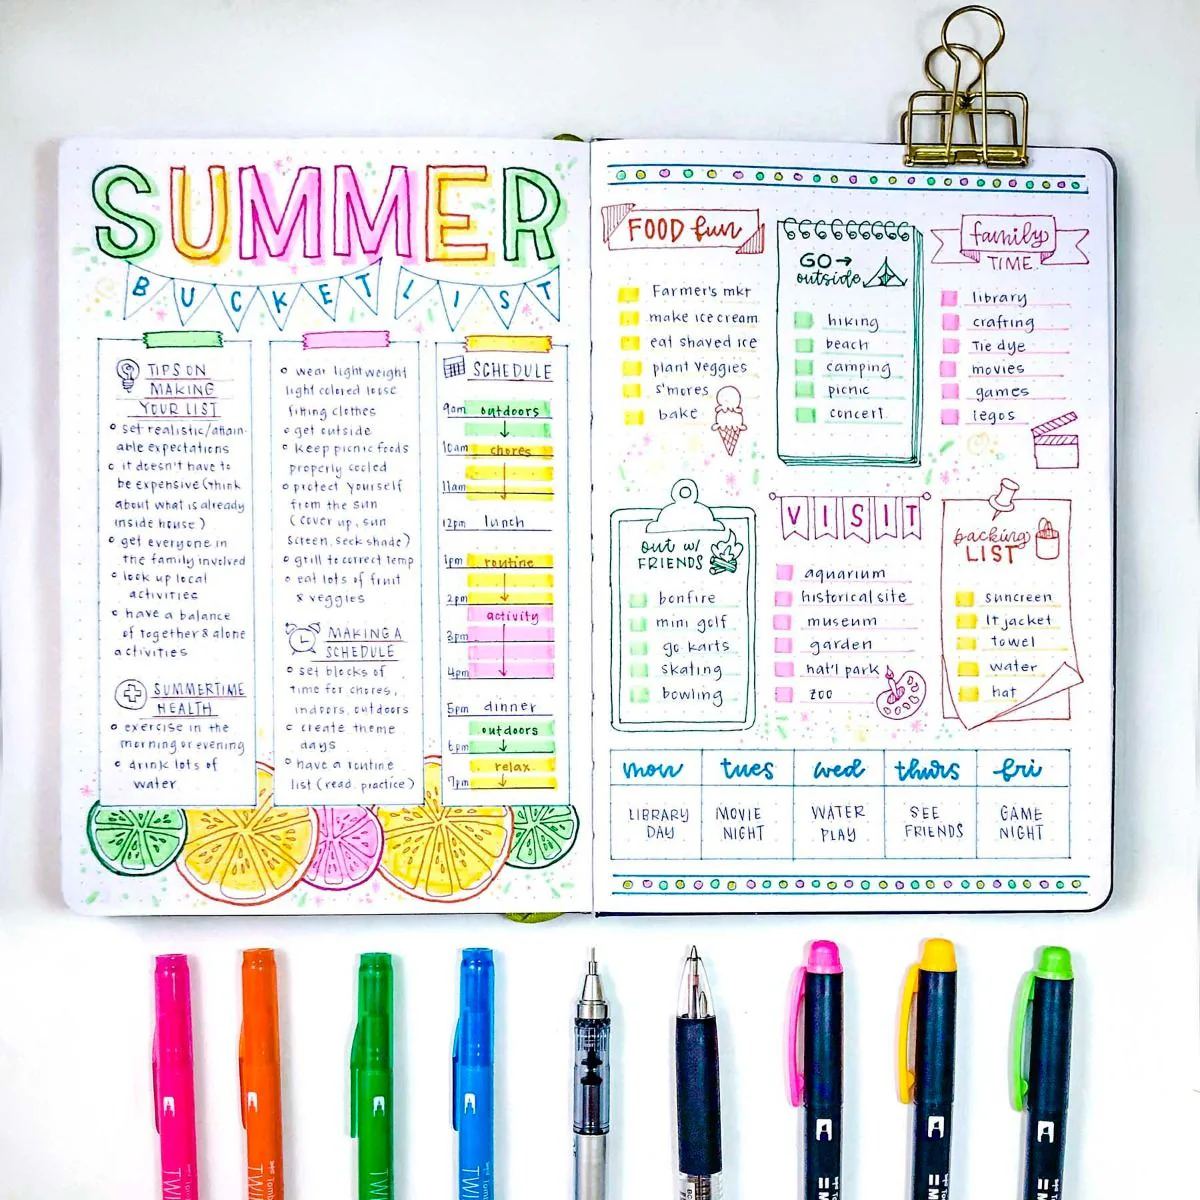 SUMMER
BUCKET LIST
TIPS ON
MAKING
YOUR LIST
set realistic/attain-
able expectations
it doesn't have to
be expensive (think
about what is already
inside house)
get everyone in
the family involved
look up local
activities
have a balance
of together & alone
activities
SUMMERTIME
HEALTH
exercise in the
morning or evening
drink lots of
water
wear lightweight
light colored loose
fitting clothes
get outside
keep picnic foods
properly cooled
protect yourself
from the sun
(cover up, sun
screen, seek shade)
grill to correct temp
eat lots of fruit
& veggies
MAKING A
SCHEDULE
set blocks of
time for chores,
indoors, outdoors
create theme
days
have a routine
list (read, practice)
SCHEDULE
9am outdoors
10am chores
11am
12pm lunch
1pm routine
2pm
activity
3pm
4pm
5pm dinner
outdoors
6pm
relax
7pm
FOOD fun
Farmer's mkt
make ice cream
eat shaved ice
plant veggies
s'mores
bake
GO→
outside
hiking
beach
camping
picnic
concert
family
TIME
library
crafting
Tie dye
movies
games
legos
out w/
FRIENDS
bonfire
mini golf
go karts
skating
bowling
VISIT
aquarium
historical site
museum
garden
nat'l park
zoo
packing
LIST
suncreen
lt jacket
towel
water
hat
mon tues wed thurs fri
LIBRARY MOVIE WATER SEE GAME
DAY NIGHT PLAY FRIENDS NIGHT